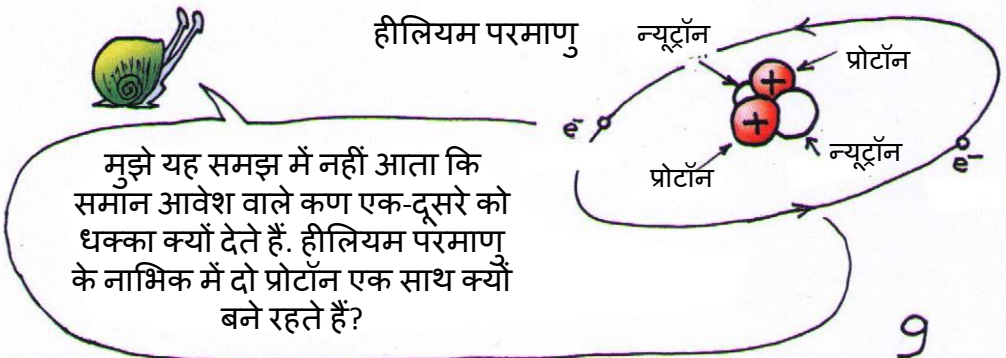 हीलियम परमाणु
न्यूट्रॉन
प्रोटॉन
e⁻
e⁻
प्रोटॉन
न्यूट्रॉन
+
+
मुझे यह समझ में नहीं आता कि
समान आवेश वाले कण एक-दूसरे को
धक्का क्यों देते हैं. हीलियम परमाणु
के नाभिक में दो प्रोटॉन एक साथ क्यों
बने रहते हैं?
9